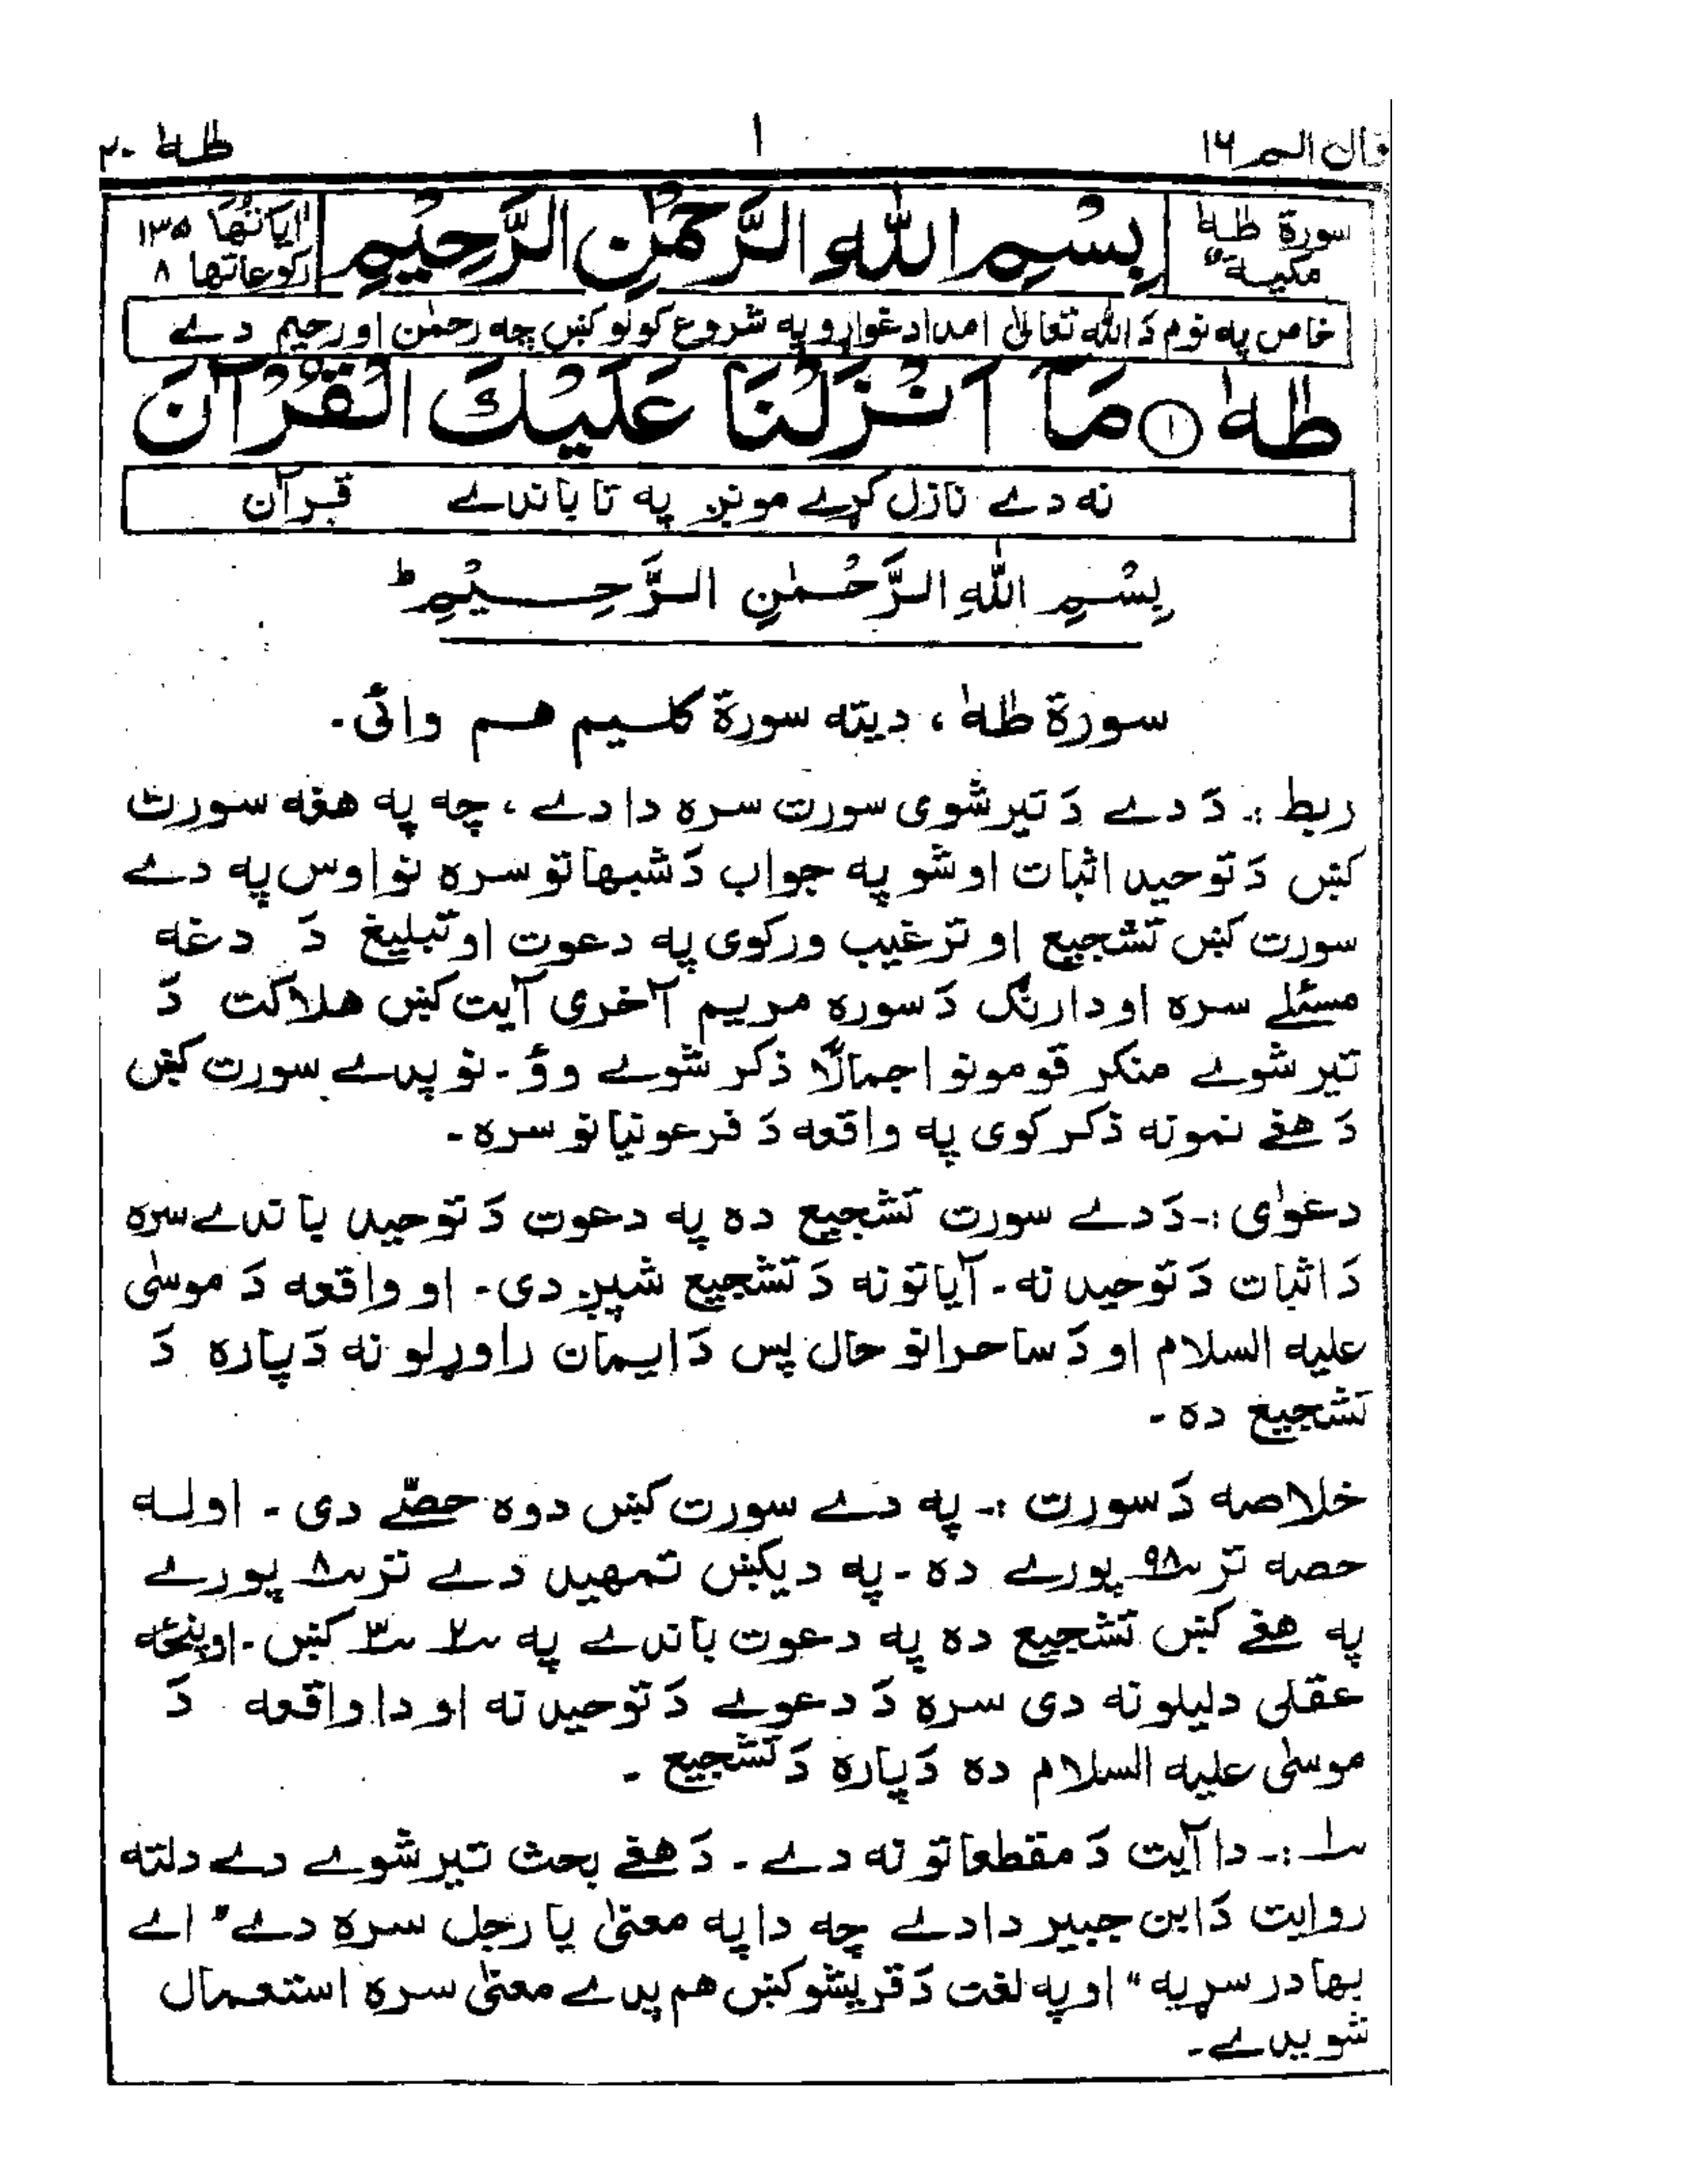 قال الم ۱۶ ۱ طٰهٰ ۲۰
سورة طٰهٰ مکیة بِسْمِ اللّٰهِ الرَّحْمٰنِ الرَّحِيْمِ اٰیَاتُهَا ۱۳۵ رکوعاتها ۸
خاص په نوم دَ الله تعالیٰ امداد غواړو په شروع کولو کښ چه رحمٰن او رحیم دے
طٰهٰ ۱ مَآ اَنْزَلْنَا عَلَيْكَ الْقُرْآنَ
نه دے نازل کړے مونږ په تا باندے قرآن
بِسْمِ اللّٰهِ الرَّحْمٰنِ الرَّحِيْمِ ط
سورة طٰهٰ، دیته سورة کلیم هم وائی۔
ربط :۔ دَ دے دَ تیر شوی سورت سره دا دے، چه په هغه سورت
کښ دَ توحید اثبات اوشو په جواب دَ شبهاتو سره نو اوس په دے
سورت کښ تشجیع او ترغیب ورکوی په دعوت او تبلیغ دَ دغه
مسئلے سره او دارنګ دَ سوره مریم آخری آیت کښ هلاکت دَ
تیر شوے منکر قومونو اجمالًا ذکر شوے وؤ۔ نو پدے سورت کښ
دَ هغے نمونه ذکر کوی په واقعه دَ فرعونیانو سره۔
دعوٰی :۔ دَ دے سورت تشجیع ده په دعوت دَ توحید باندے سره
دَ اثبات دَ توحید نه۔ آیاتونه دَ تشجیع شپږ دی۔ او واقعه دَ موسٰی
علیه السلام او دَ ساحرانو حال پس دَ ایمان راوړلو نه دَ پاره دَ
تشجیع ده۔
خلاصه دَ سورت :۔ په دے سورت کښ دوه حصّے دی۔ اوله
حصه تر ؁۹۸ پورے ده۔ په دیکښ تمهید دے تر ؁۸ پورے
په هغے کښ تشجیع ده په دعوت باندے په ؁۲ ؁۳ کښ۔ او پنځه
عقلی دلیلونه دی سره دَ دعوے دَ توحید نه او دا واقعه دَ
موسٰی علیه السلام ده دَ پاره دَ تشجیع۔
؁۱ :۔ دا آیت دَ مقطعاتو نه دے۔ دَ هغے بحث تیر شوے دے دلته
روایت دَ ابن جبیر دا دے چه دا په معنیٰ یا رجل سره دے "اے
بهادر سړیه" او په لغت دَ قریشو کښ هم پدے معنیٰ سره استعمال
شویدے۔